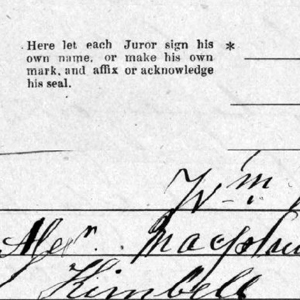 Here let each Juror sign his *
own name, or make his own
mark, and affix or acknowledge
his seal.
Wm
Alexr.
Kimbell